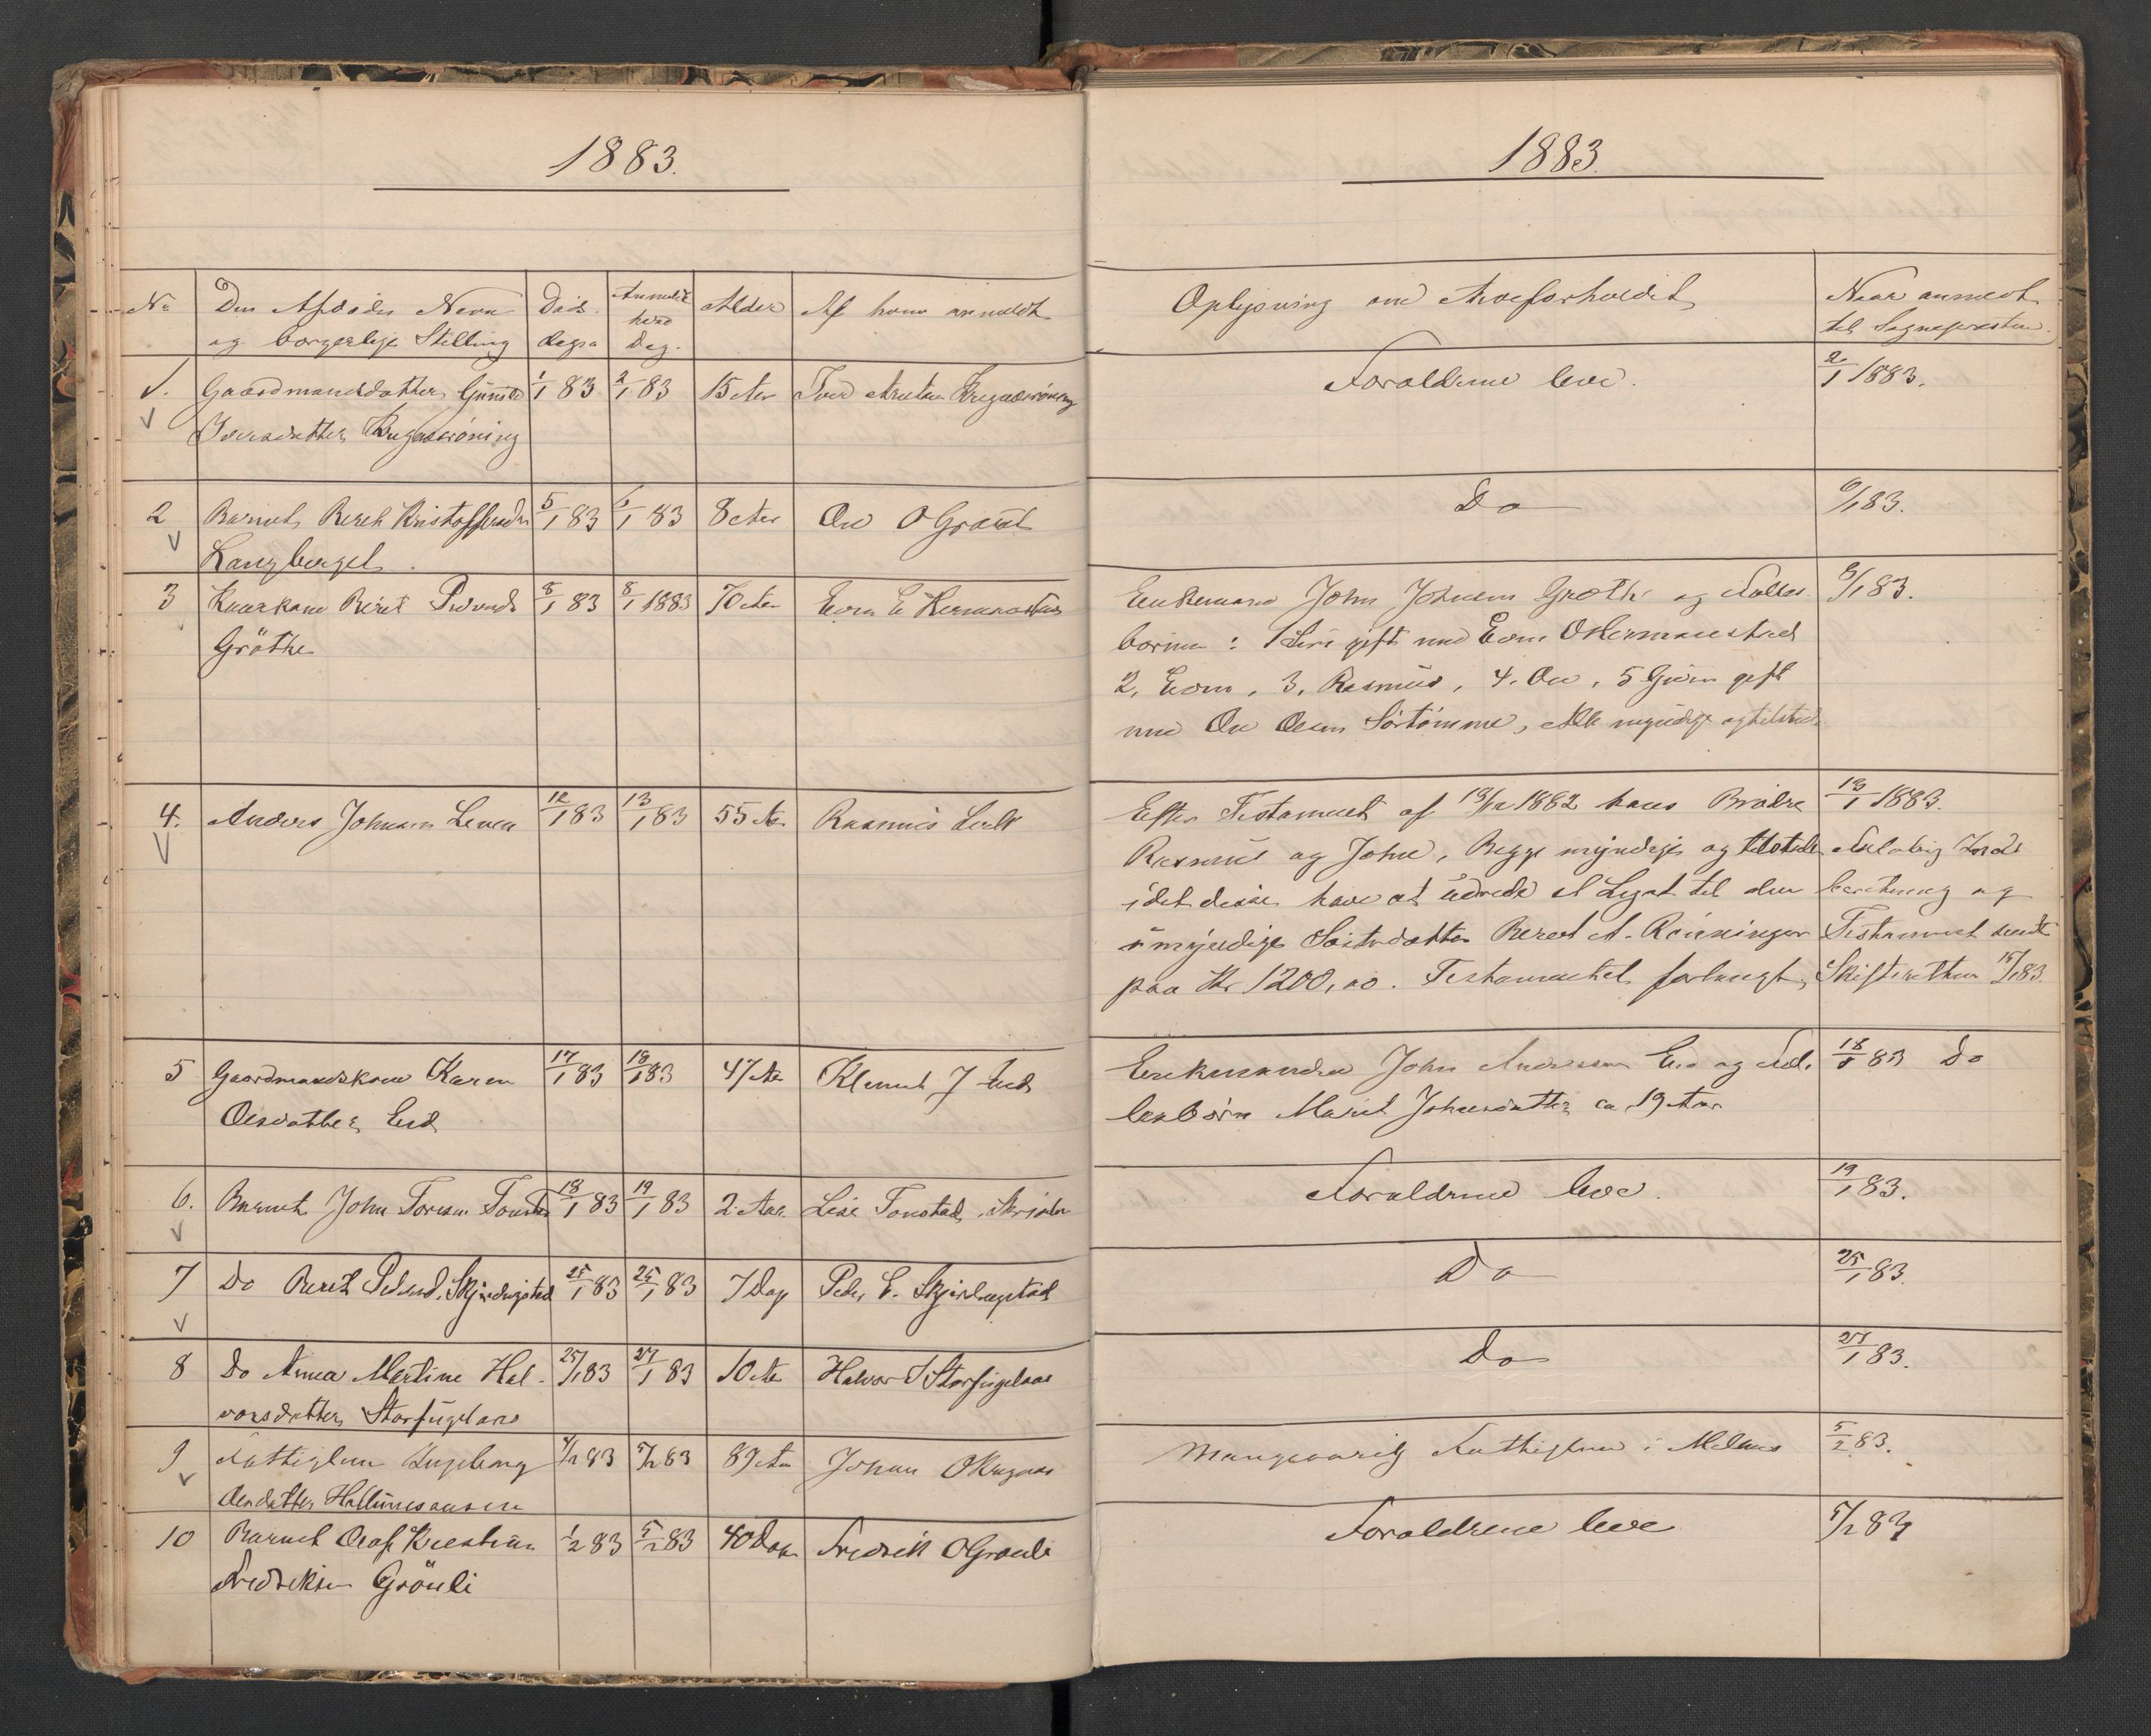 1883.
No
Den Afdødes Navn
og borgerlige Stilling
Døds
dagen
Anmeldt
Dag.
Alder
Af hvem anmeldt
1.
Gaardmandsdatter Gunild
1/1 83
2/1 83
15 Aar
Iver
Iversdatter
2
Barnet Beret Kristoffersdtr
5/1 83
6/1 83
8 Aar
Ole O
Langberget.
3
Beret
8/1 83
8/1 1883
70 Aar
Gröthe
4.
Anders Johnsen
12/1 83
13/1 83
55 Aar
Rasmus
5
Gaardmandskone Karen
17/1 83
18/1 83
47 Aar
Klemet J
Olesdatter
6.
Barnet John
18/1 83
19/1 83
2 Aar.
Tonstad
7
Do Beret Pedersd. Skjerdingstad
25/1 83
25/1 83
7 Dag
Peder E. Skjerdingstad
8
Do Anna Martine Hal-
25/1 83
27/1 83
10 Aar
Halvor Storfuglaas
vorsdatter Storfuglaas
9
Fattiglem Ingeborg
4/2 83
5/2 83
89 Aar
Johan O
Olesdatter
10
Barnet Olaf Kristian
1/2 83
5/2 83
40 Dage
Fredrik O Grönli
Fredriksen Grönli
1883.
Oplysning om Arveforholdet
Naar anmeldt
til Sognepresten.
Forældrene leve.
2/1 1883.
Do
6/1 83.
Enkemand John Johnsen Gröthe og Fælles
8/1 83.
børnene: 1 Siri gift med
2, 3, Rasmus, 4. Ole, 5 Guren gift
med Ole Olsen Sörtömme, Alle myndige og tilstede
Efter Testament af 1882 hans Brødre
13/1 1883.
Rasmus og John, Begge myndige og tilstede
idet disse have at udrede et Legat til den
beretning og
umyndige Søsterdatter Beret A. Rönningen
Testament sendt
paa Kr 1200,00. Testamentet forlangt,
Skifteretten 15/1 83.
Enkemanden John Andersen og Fæl-
18/1 83 Do
lesbørn Marit Johnsdatter ca 19 Aar
Forældrene leve.
19/1 83.
Do
25/1 83.
Do
27/1 83.
Mangeaarig Fattiglem i Melhus
5/2 83.
Forældrene leve
5/2 83